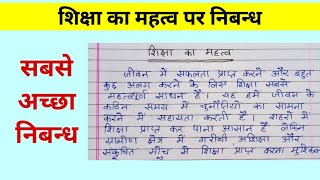 शिक्षा का महत्व पर निबन्ध
सबसे
अच्छा
निबन्ध
शिक्षा का महत्व
जीवन में सफलता प्राप्त करने और बहुत
कुछ अलग करने के लिए शिक्षा सबसे
महत्वपूर्ण साधन है। यह हमें जीवन के
कठिन समय में चुनौतियों का सामना
करने में सहायता करती है। शहरों में
शिक्षा प्राप्त कर पाना आसान है लेकिन
ग्रामीण क्षेत्र में गरीबी अशिक्षा और
संकुचित सोच में शिक्षा प्राप्त करना मुश्किल